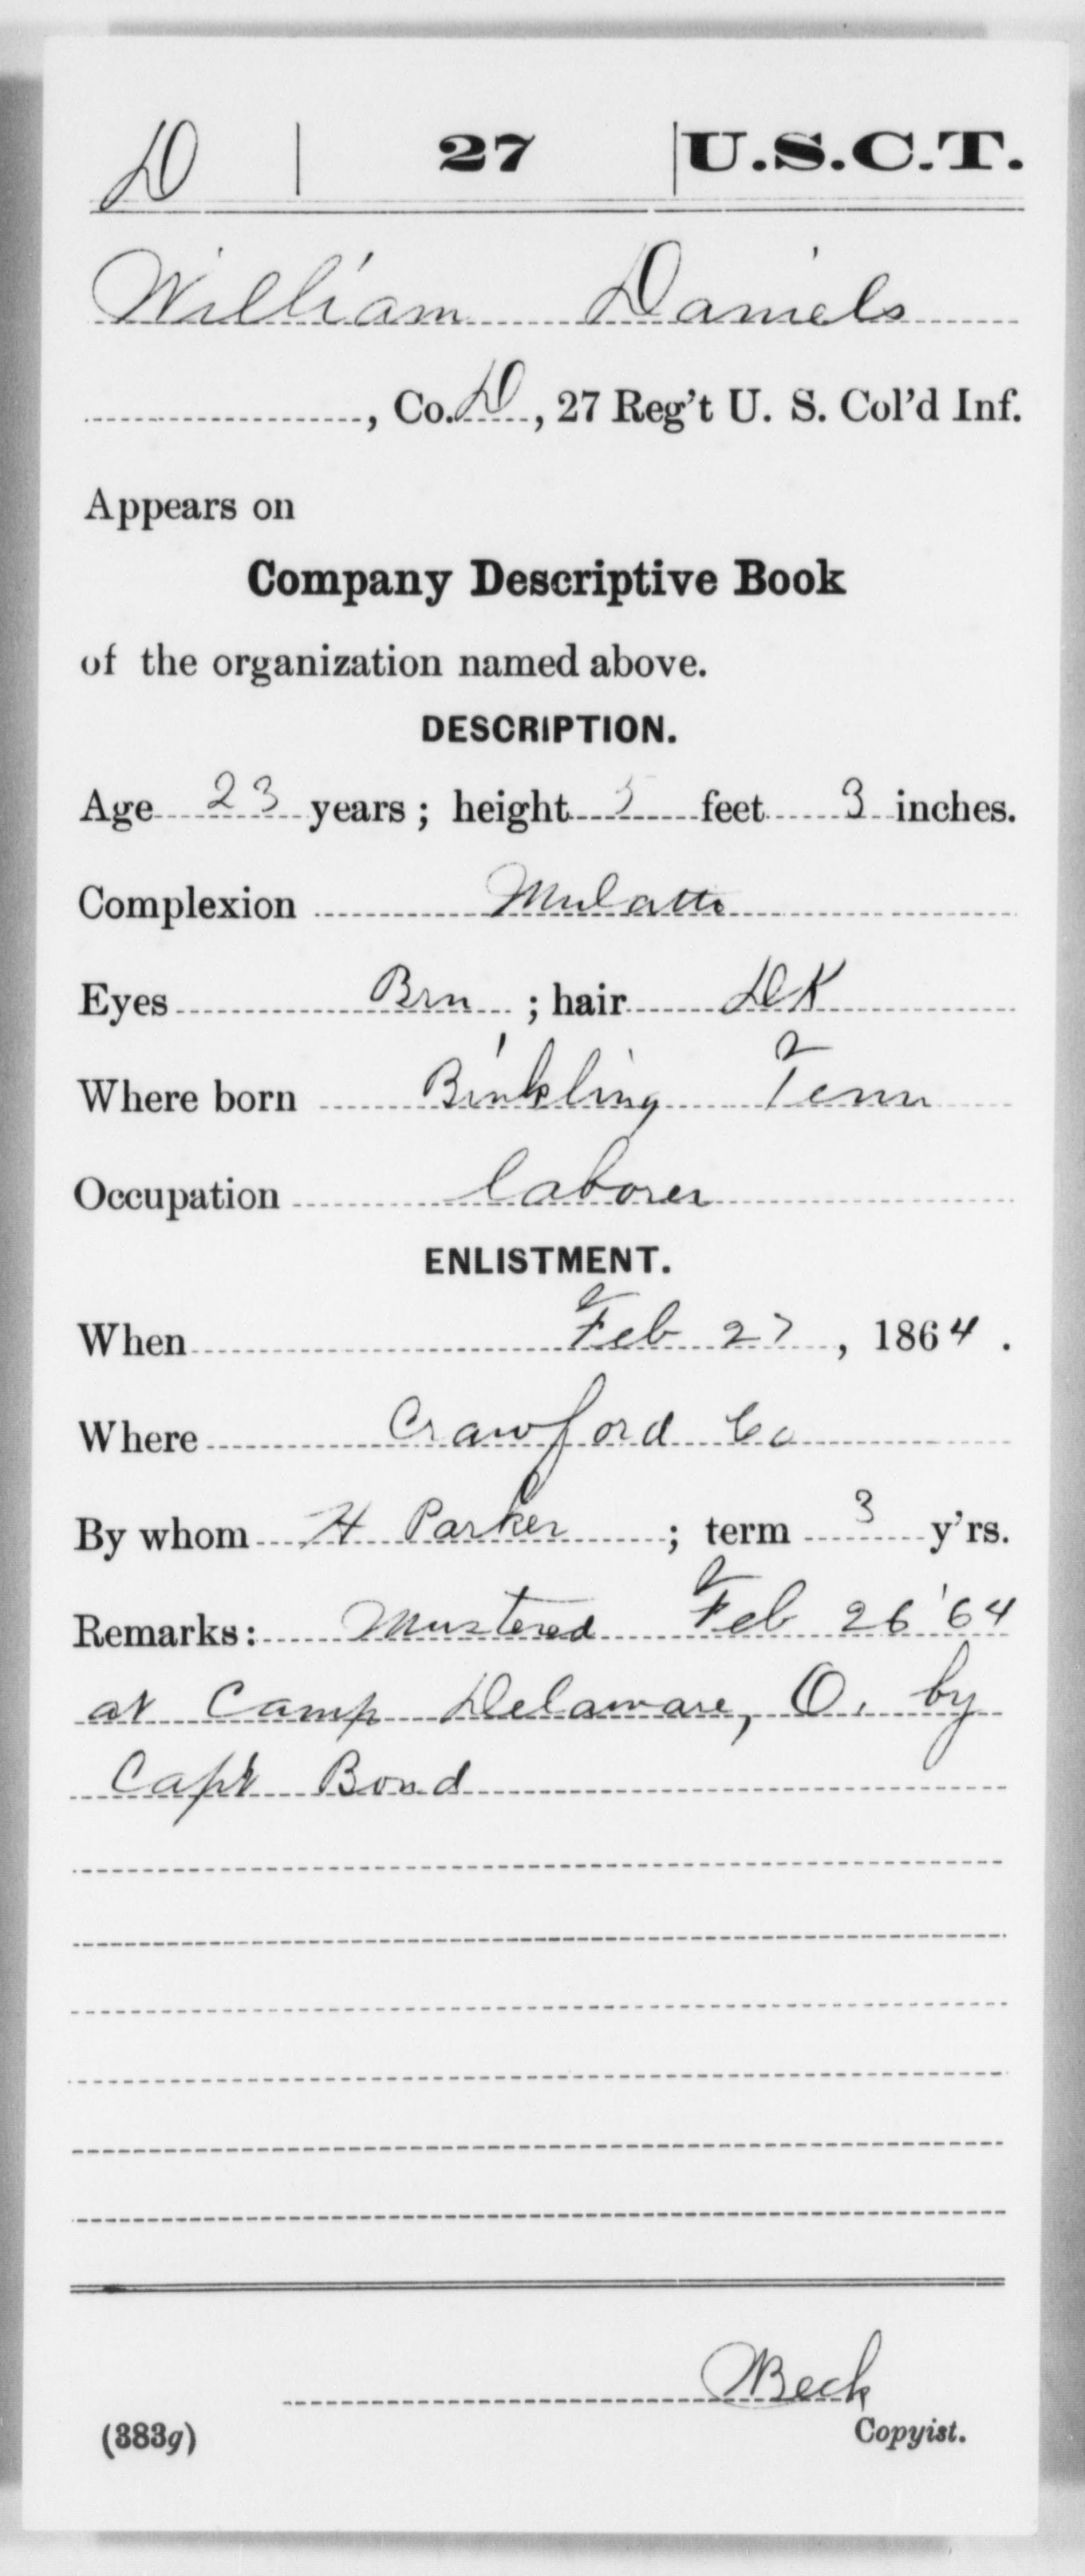 D | 27 | U.S.C.T.
William Daniels
, Co. D, 27 Reg't U. S. Col'd Inf.
Appears on
Company Descriptive Book
of the organization named above.
DESCRIPTION.
Age 23 years; height 5 feet 3 inches.
Complexion Mulatto
Eyes Brn; hair Dk
Where born Binkling Tenn
Occupation laborer
ENLISTMENT.
When Feb 27, 1864.
Where Crawford Co
By whom H Parker; term 3 y'rs.
Remarks: Mustered Feb 26 '64
at Camp Delaware, O. by
Capt Bond
Beck
(383g) Copyist.